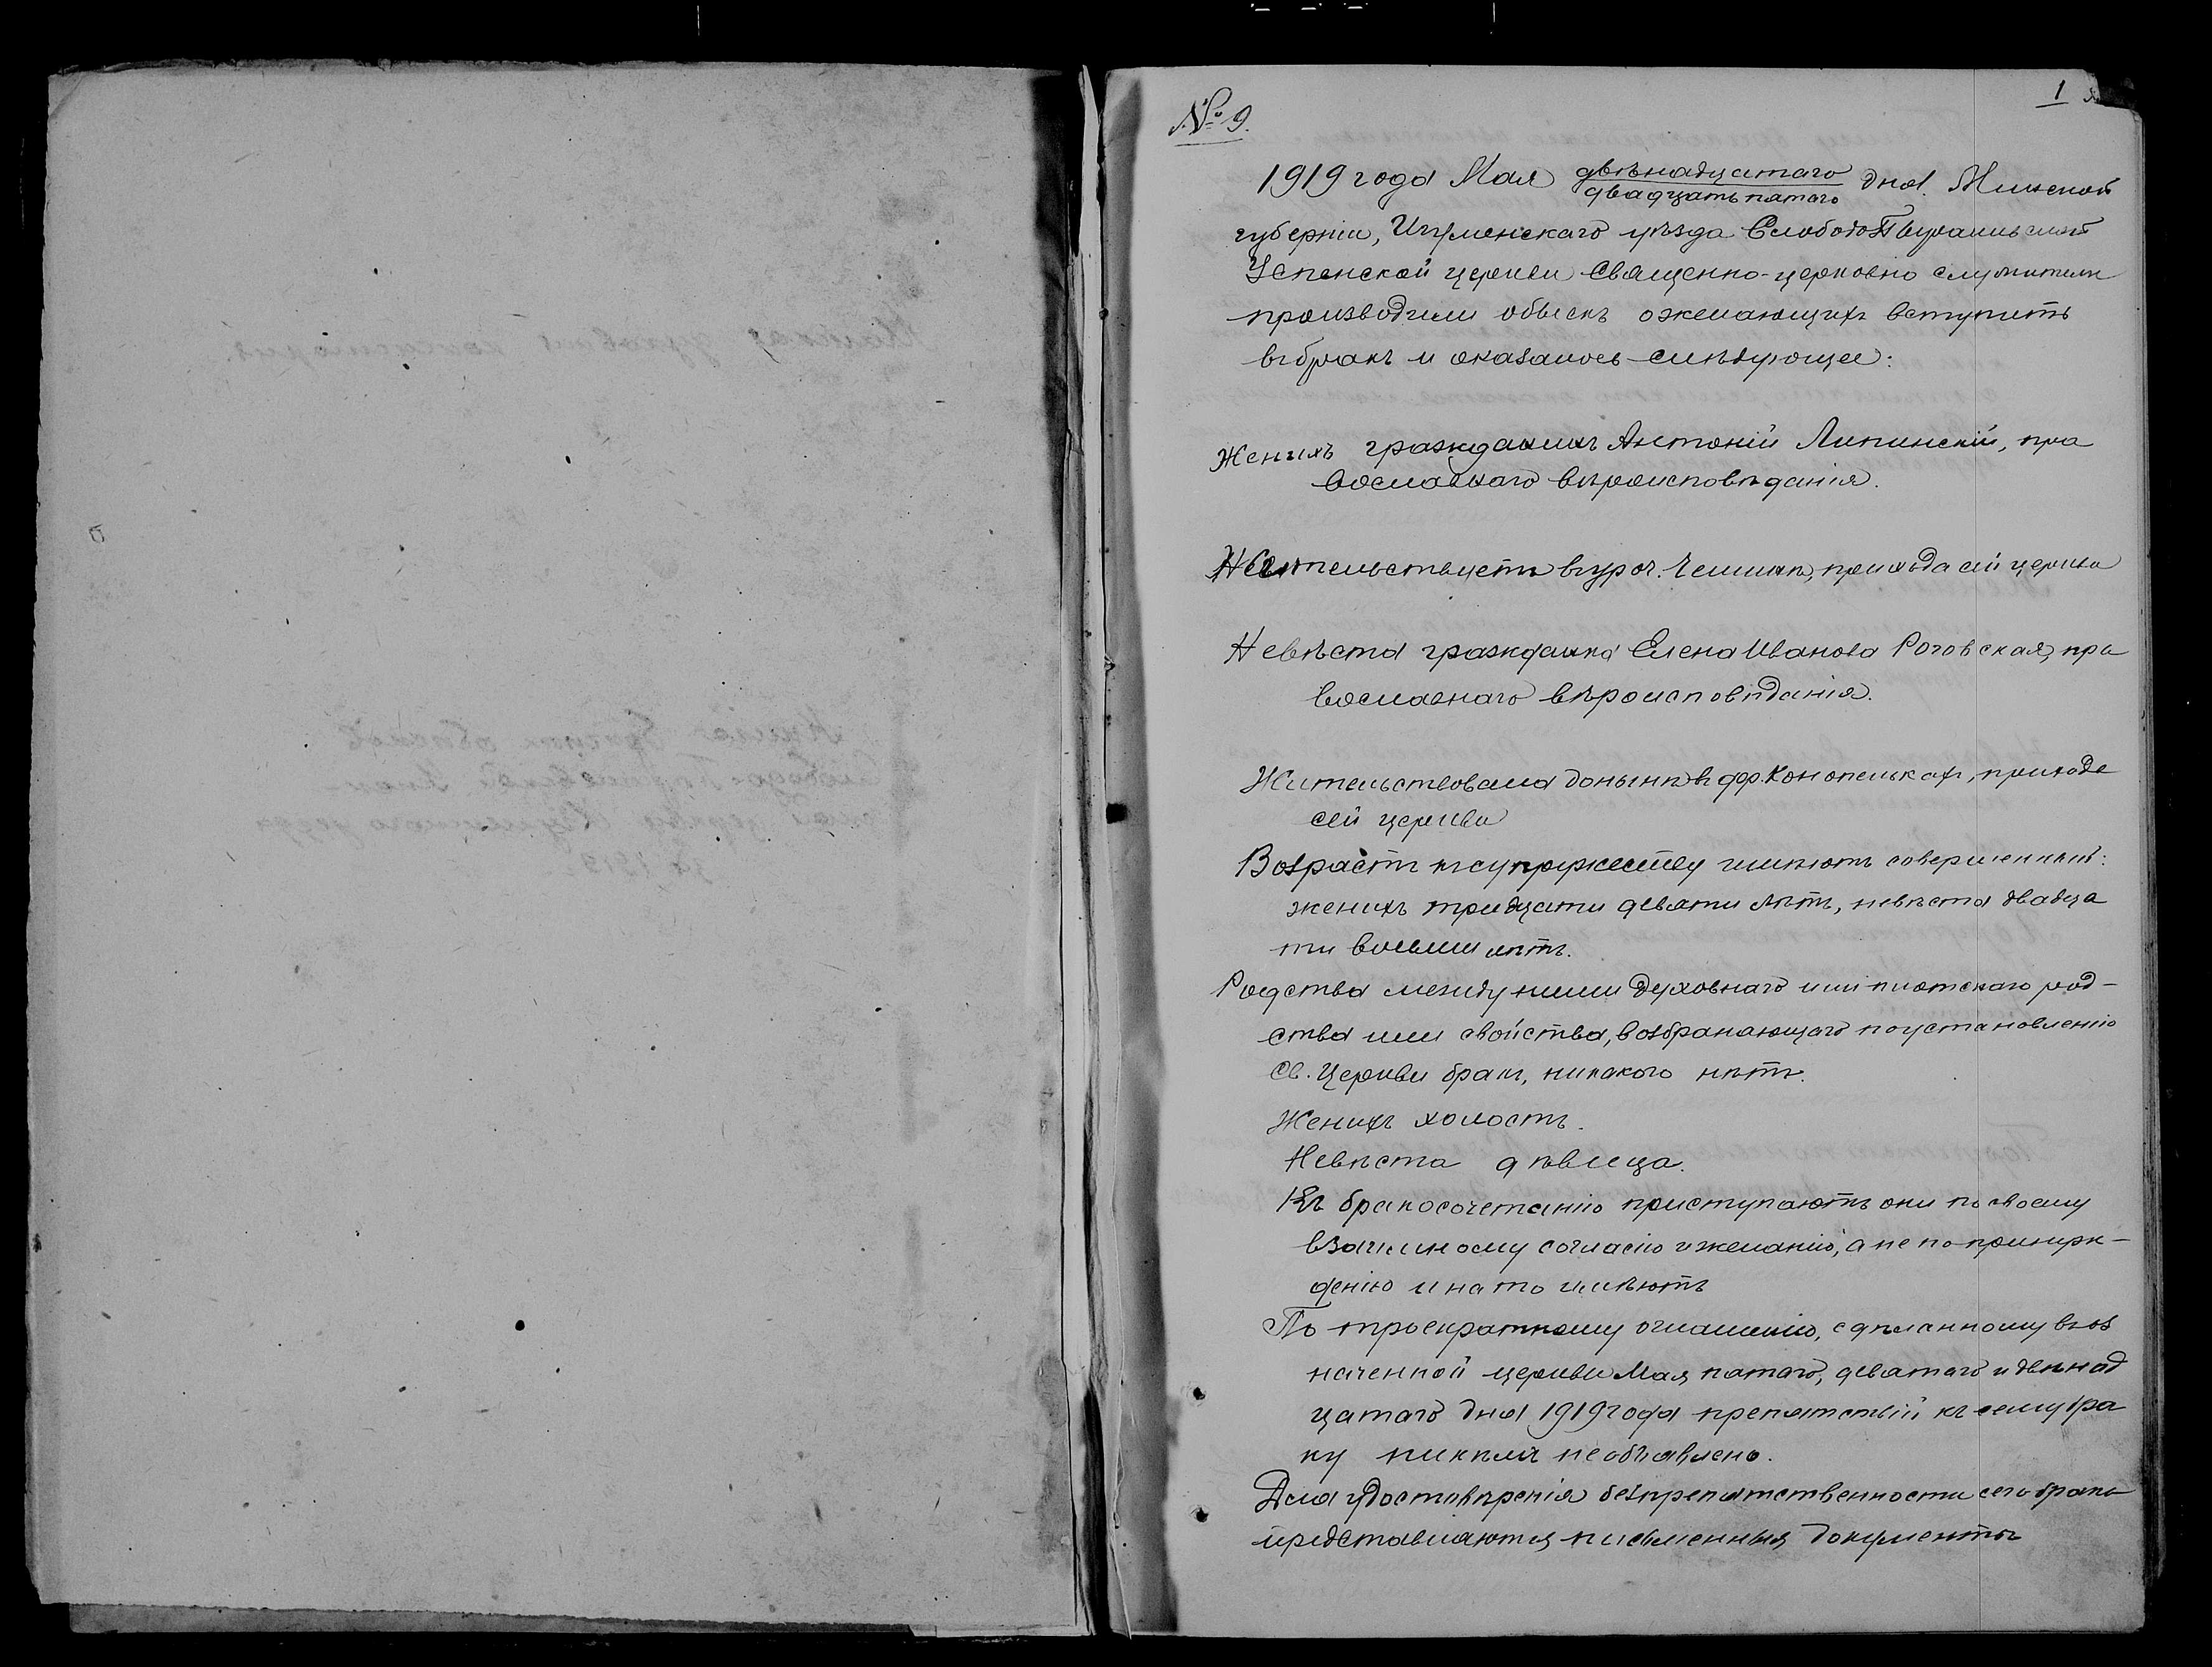 1
№ 9.
1919 года Мая двѣнадцатаго дня. Минской
двадцать пятаго
губерніи, Игуменскаго уѣзда Слободо
Успенской церкви Священно-церковно служители
производили обыскъ о желающихъ вступить
въ бракъ и оказалось слѣдующее:
Женихъ гражданинъ Антоній Липинскій, пра
вославнаго вѣроисповѣданія.
Жительствуетъ въ уроч. прихода сей церкви
Невѣста гражданка Елена Иванова Роговская, пра
вославнаго вѣроисповѣданія.
Жительствовала донынѣ въ фор. Конопелькахъ, приходе
сей церкви
Возрастъ къ супружеству имѣютъ совершенный:
женихъ тридцати девяти лѣтъ, невѣста двадца
ти восьми лѣтъ.
Родства между ними духовнаго или плотскаго род-
ства или свойства, возбраняющаго по установленію
Св. Церкви бракъ, никакого нѣтъ.
Женихъ холостъ.
Невѣста дѣвица.
Къ бракосочетанію приступаютъ они по своему
взаимному согласію и желанію, а не по принуж-
денію и на то имѣютъ
По троекратному оглашенію, сдѣланному въ оз
наченной церкви Мая пятаго, девятаго и двѣнад
цатаго дня 1919 года препятствій къ сему бра
ку никѣмъ не объявлено.
Для удостовѣренія безпрепятственности сего брака
представляются письменныя документы